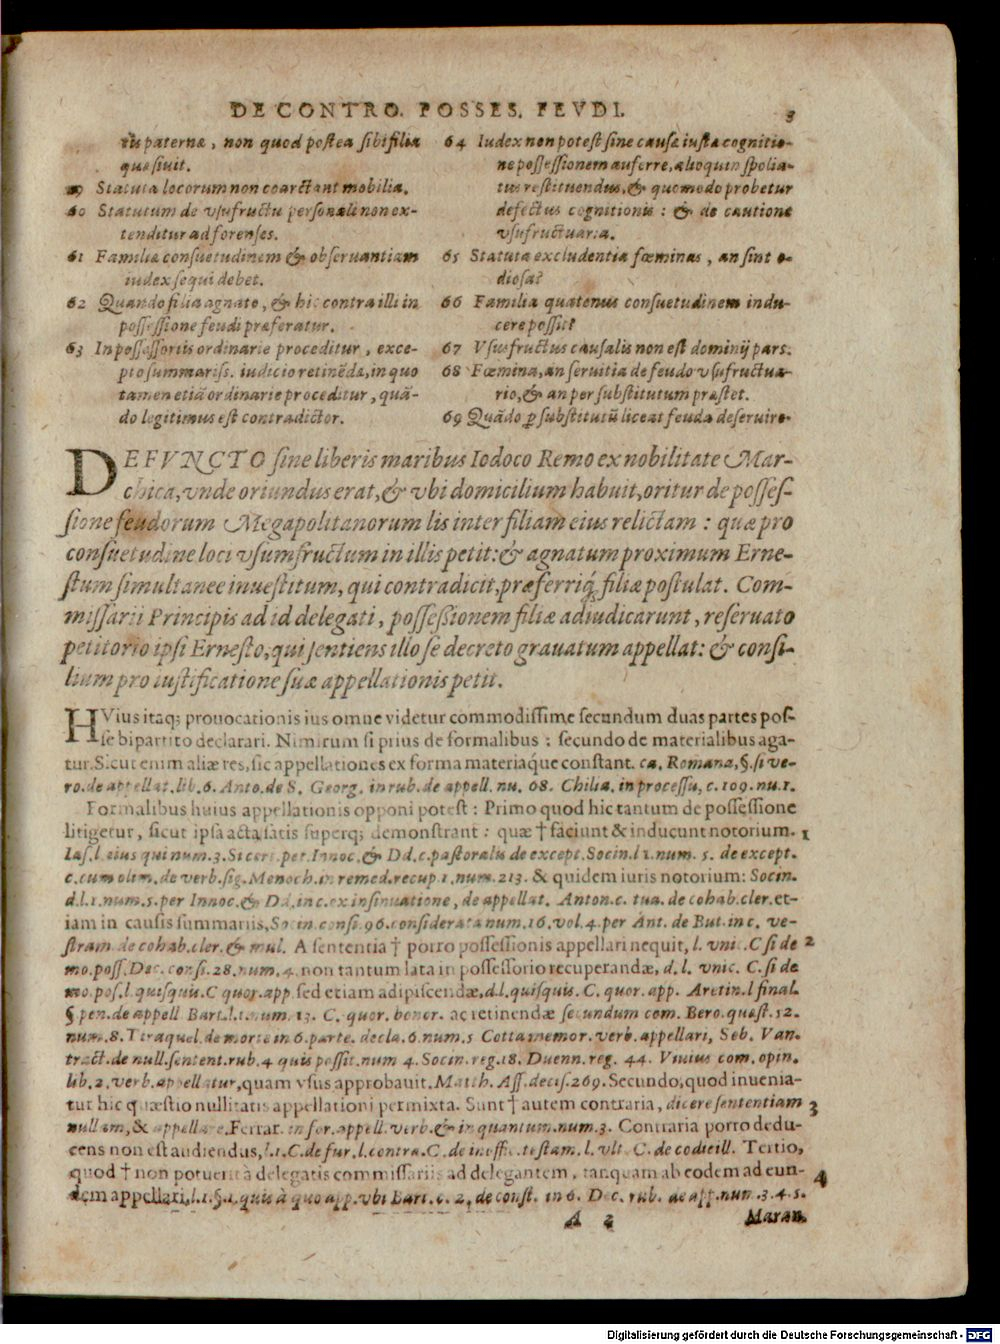 DE CONTRO. POSSES. FEVDI. 3
ris paternæ, non quod postea sibi filia
quæsiuit.
59 Statuta locorum non coarctant mobilia.
60 Statutum de vsufructu personali non ex-
tenditur ad forenses.
61 Familiæ consuetudinem & obseruantiam
iudex sequi debet.
62 Quando filia agnato, & hic contra illi in
possessione feudi præferatur.
63 In possessoriis ordinarie proceditur, exce-
pto summariss. iudicio retinēdæ, in quo
tamen etiā ordinarie proceditur, quā-
do legitimus est contradictor.
64 Iudex non potest sine causæ iusta cognitio-
ne possessionem auferre, alioquin spolia-
tus restituendus, & quomodo probetur
defectus cognitionis: & de cautione
vsufructuaria.
65 Statuta excludentia fœminas, an sint o-
diosa?
66 Familia quatenus consuetudinem indu-
cere possit?
67 Vsusfructus causalis non est dominij pars.
68 Fœmina, an seruitia de feudo vsufructua-
rio, & an per substitutum præstet.
69 Quādo ꝑ substitutū liceat feuda deseruire.
DEFVNCTO sine liberis maribus Iodoco Remo ex nobilitate Mar-
chica, vnde oriundus erat, & vbi domicilium habuit, oritur de posses-
sione feudorum Megapolitanorum lis inter filiam eius relictam: quæ pro
consuetudine loci vsumfructum in illis petit: & agnatum proximum Erne-
stum simultanee inuestitum, qui contradicit, præferriq́; filiæ postulat. Com-
missarii Principis ad id delegati, possessionem filiæ adiudicarunt, reseruato
petitorio ipsi Ernesto, qui sentiens illo se decreto grauatum appellat: & consi-
lium pro iustificatione suæ appellationis petit.
HVius itaq; prouocationis ius omne videtur commodissime secundum duas partes pos-
se bipartito declarari. Nimirum si prius de formalibus: secundo de materialibus aga-
tur. Sicut enim aliæ res, sic appellationes ex forma materiaque constant. ca. Romana, §. si ve-
ro. de appellat. lib. 6. Anto. de S. Georg. in rub. de appell. nu. 68. Chilia. in processu, c. 109. nu. 1.
Formalibus huius appellationis opponi potest: Primo quod hic tantum de possessione
litigetur, sicut ipsa acta satis superq; demonstrant: quæ † faciunt & inducunt notorium. 1
Ias. l. eius qui num. 3. Si cert. pet. Innoc. & Dd. c. pastoralis de except. Socin. l 1. num. 5. de except.
c. cum olim. de verb. sig. Menoch. in remed. recup. 1. num. 213. & quidem iuris notorium: Socin.
d. l. 1. num. 5. per Innoc. & Dd. in c. ex insinuatione, de appellat. Anton. c. tua. de cohab. cler. et-
iam in causis summariis, Socin. consi. 96. considerata num. 16. vol. 4. per Ant. de But. in c. ve-
stram de cohab. cler. & mul. A sententia † porro possessionis appellari nequit, l. vnic. C si de 2
mo. poss. Dec. consi. 28. num. 4. non tantum lata in possessorio recuperandæ, d. l. vnic. C. si de
mo. pos. l. quisquis. C quor. app. sed etiam adipiscendæ, d. l. quisquis. C. quor. app. Aretin. l final.
§ pen. de appell Bart. l. 1. num. 13. C. quor. bonor. ac retinendæ secundum com. Bero. quæst. 52.
num. 8. Tiraquel. de morte in 6. parte. decla. 6. num. 5 Cotta memor. verb. appellari, Seb. Van.
tract. de null. sentent. rub. 4 quis possit. num 4. Socin. reg. 18. Duenn. reg. 44. Viuius com. opin.
lib. 2. verb. appellatur, quam vsus approbauit. Matth. Aff. decis. 269. Secundo, quod inuenia-
tur hic quæstio nullitatis appellationi permixta. Sunt † autem contraria, dicere sententiam 3
nullam, & appellare. Ferrar. in for. appell. verb. & in quantum. num. 3. Contraria porro dedu-
cens non est audiendus, l. 1. C. de fur. l. contra. C. de inoffic. testam. l. vlt. C. de codicill. Tertio,
quod † non potuerit à delegatis commissariis ad delegantem, tanquam ab eodem ad eun- 4
dem appellari, l. 1. §. 1. quis à quo app. vbi Bart. c. 2, de const. in 6. Dec. rub. de app. num. 3. 4. 5.
A 2 Maran.
Digitalisierung gefördert durch die Deutsche Forschungsgemeinschaft - DFG